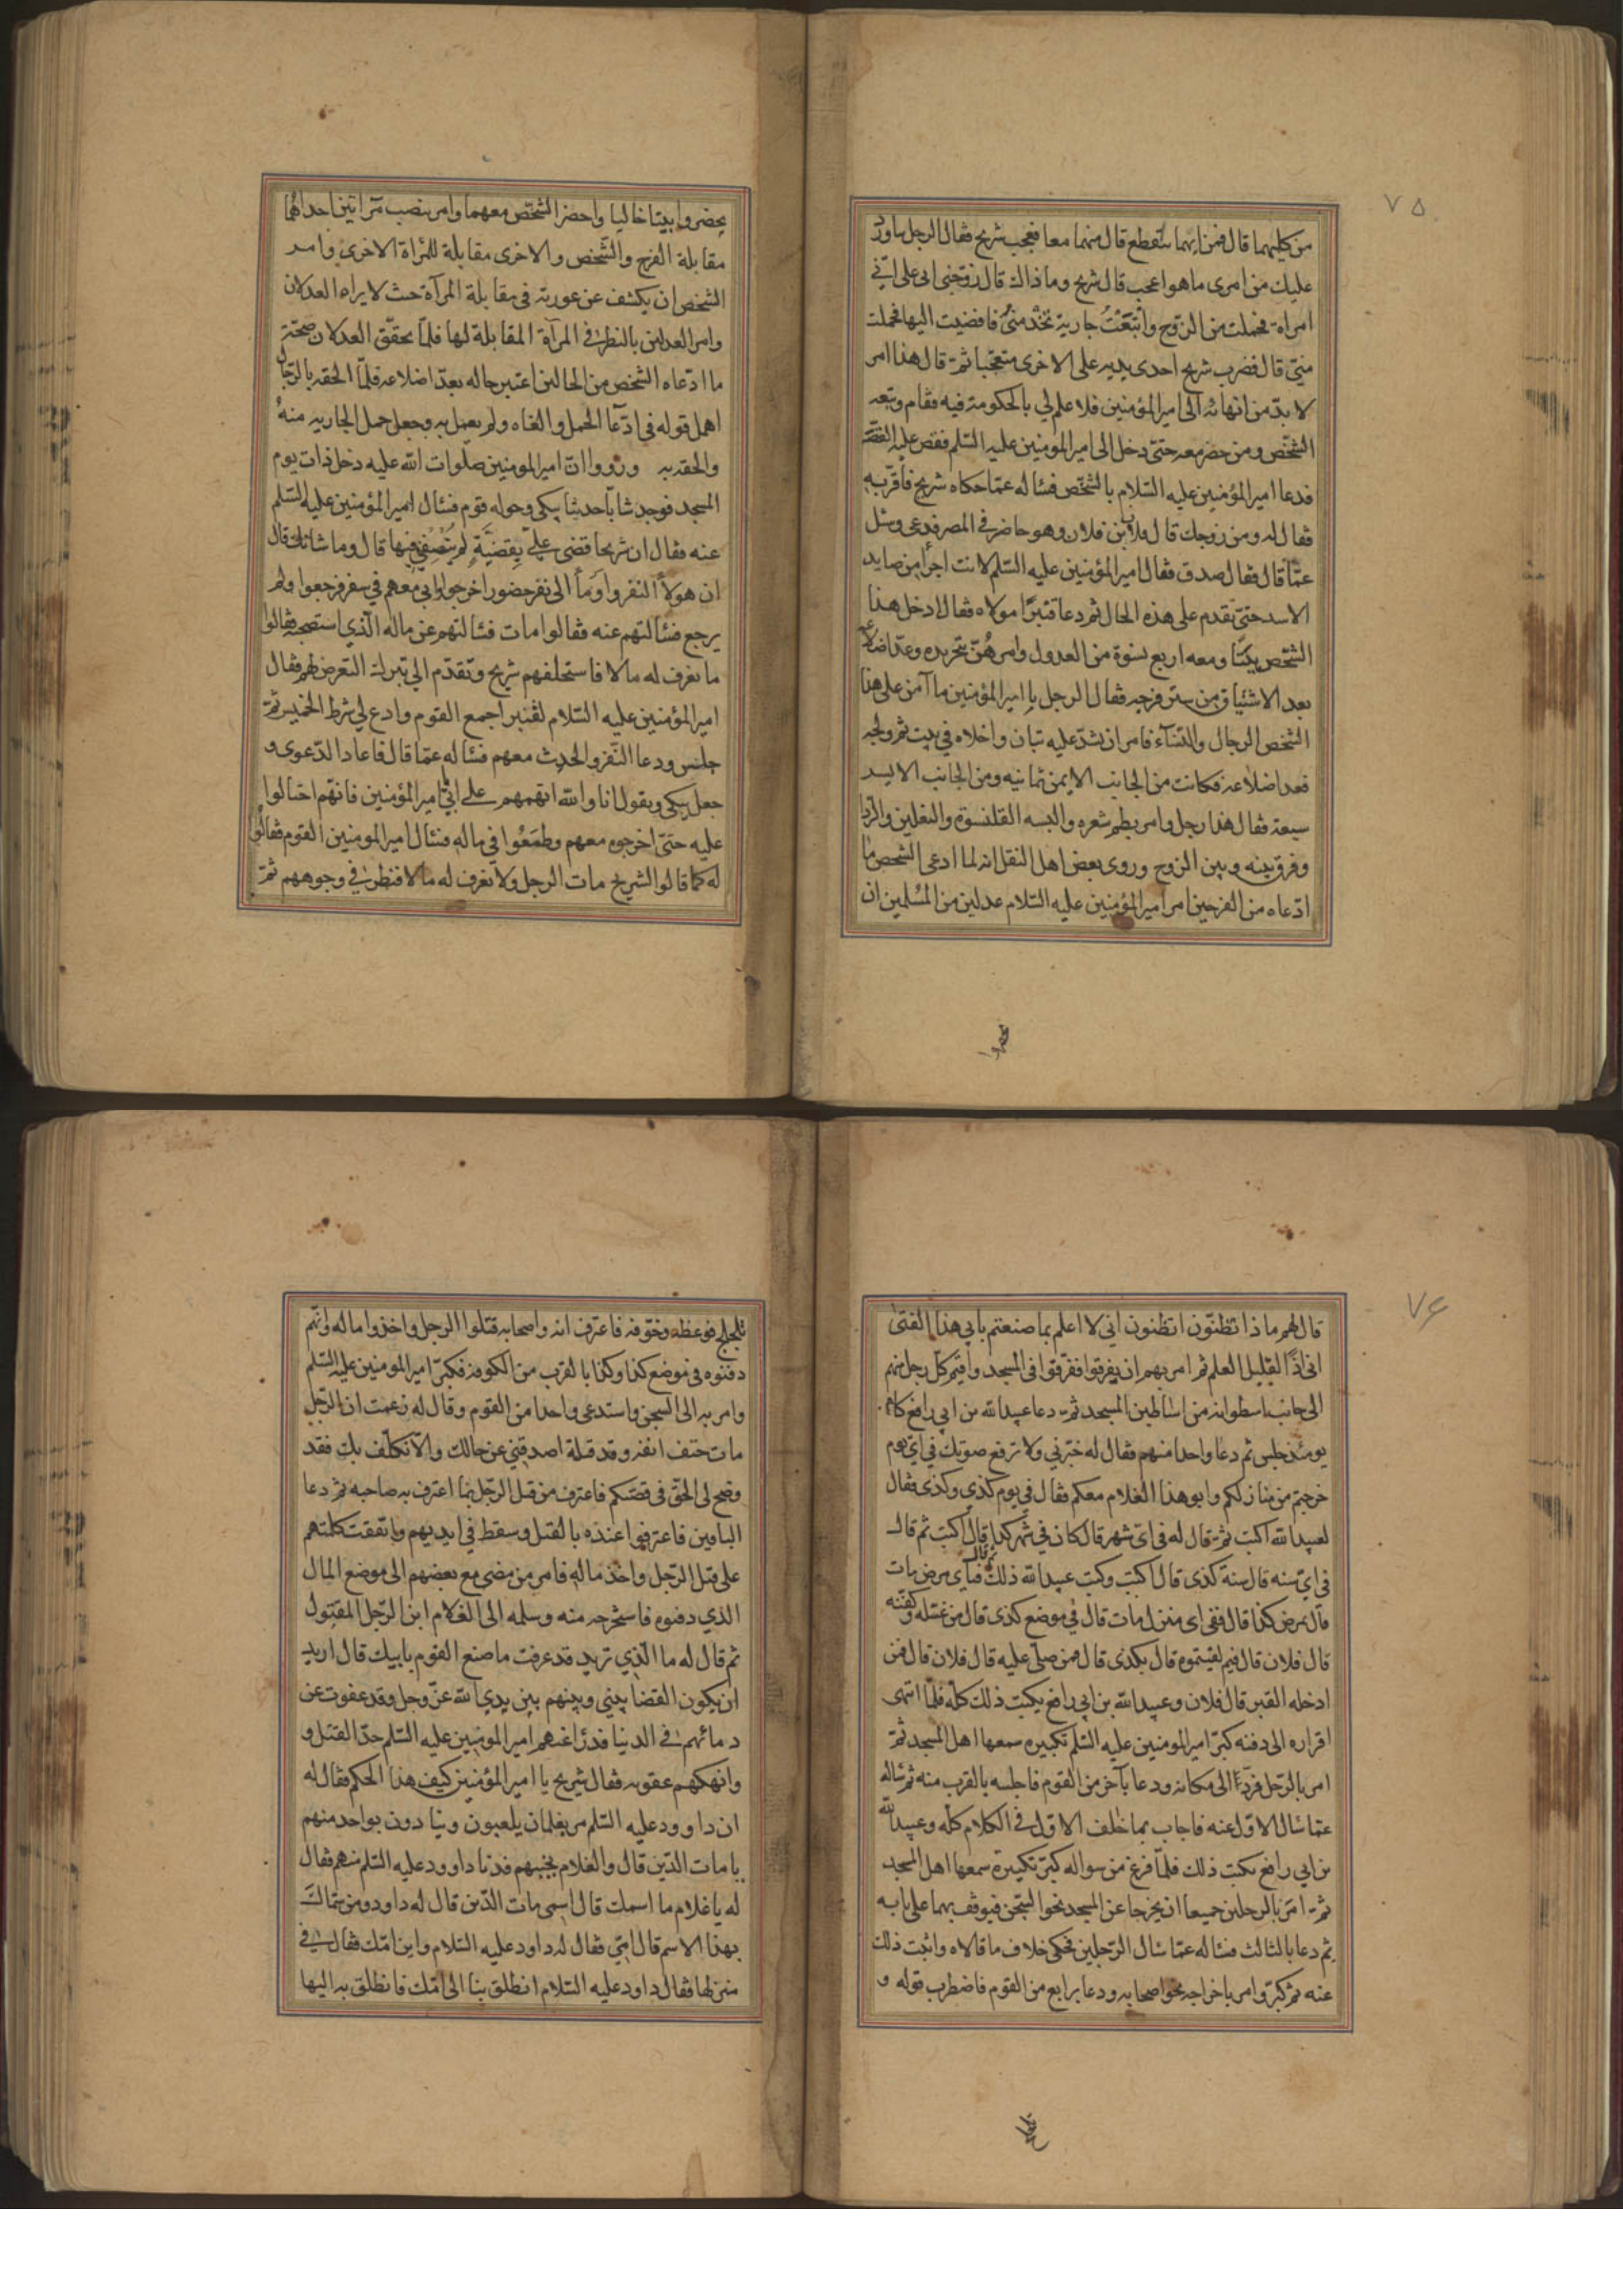 ٧٥
من كليهما قال فمن ايهما ينقطع قال منهما معا فعجب شريح فقال الرجل ساورد
عليك من امرى ما هو اعجب قال شريح وما ذاك قال زوجنى ابى على انّي
امراة فحملت من الزوج وابتعْتُ جارية تخدمنى فافضيت اليها فحملت
منّي قال فضرب شريح احدى يديه على الاخرى متعجّبا ثمّ قال هذا امر
لا بدّ من انهائه الى امير المؤمنين فلا علم لي بالحكومة فيه فقام وتبعه
الشخص ومن حضر معه حتى دخل الى امير المومنين عليه السّلم فقص عليه القصّة
فدعا امير المؤمنين عليه السّلام بالشخص فسأله عمّا حكاه شريح فأقرّ به
فقال له ومن زوجك قال فلان بن فلان وهو حاضر في المصر فدعى وسئل
عمّا قال فقال صدق فقال امير المؤمنين عليه السّلم لانت اجرأ من صايد
الاسد حتى تقدم على هذه الحال ثم دعا قنبرًا مولاه فقال ادخل هذا
الشخص بيتًا ومعه اربع نسوة من العدول وامرهُنّ بتجريده وعدّ اضلاعه
بعد الاستيثاق من ستر فرجه فقال الرجل يا امير المؤمنين ما آمن على هذا
الشخص الرجال والنساء فامر ان يشدّ عليه تبان واخلاه في بيت ثم ولجه
فعد اضلاعه فكانت من الجانب الايمن ثمانيه ومن الجانب الايسر
سبعة فقال هذا رجل وامر بطم شعره والبسه القلنسوة والنعلين والردا
وفرق بينه وبين الزوج وروى بعض اهل النقل انه لما ادعى الشخص ما
ادّعاه من الفرجين امر امير المؤمنين عليه السّلام عدلين من المُسلمين ان
يحضروا بيتا خاليا واحضر الشخص معهما وامر بنصب مراتين احداهما
مقابلة الفرج والشخص والاخرى مقابلة للمرأة الاخرى وامر
الشخص ان يكشف عن عورته في مقابلة المرآة حيث لا يراه العدلان
وامر العدلين بالنظر في المرآة المقابلة لها فلمّا تحقّق العدلان صحّة
ما ادّعاه الشخص من الحالين اعتبر حاله بعدّ اضلاعه فلمّا الحقه بالرّجال
اهمل قوله في ادّعا الحمل والغاه ولم يعمل به وجعل حمل الجاريه منهُ
والحقه به ورووا انّ امير المومنين صلوات الله عليه دخل ذات يوم
المسجد فوجد شابّا حدثا يبكى وحوله قوم فسئال امير المؤمنين عليه السّلم
عنه فقال ان شريحا قضى عليّ بِقضيّةٍ لم يُنْصفني فيها قال وما شانك قال
ان هولآ النفر واومأ الى نفر حضور اخرجوا ابي معهم في سفر فرجعوا ولم
يرجع فسئالتهم عنه فقالوا مات فسئالتهم عن ماله الّذي استصحبه فقالوا
ما نعرف له مالا فاستحلفهم شريح وتقدّم الى بترك التعرض لهم فقال
امير المؤمنين عليه السّلام لقنبر اجمع القوم وادع لي شرط الخميس ثمّ
جلس ودعا النّفر والحدث معهم فسئاله عمّا قال فاعاد الدّعوى و
جعل يبكى ويقول انا والله اتهمهم على ابي يا امير المؤمنين فانهم احتالوا
عليه حتى اخرجوه معهم وطمعُوا في ماله فسئال امير المومنين القوم فقالوا
له كما قالوا الشريح مات الرجل ولا نعرف له مالا فنظر في وجوههم ثمّ
٧٦
قال لهم ماذا تظنّون اتظنون انى لا اعلم بما صنعتم بابي هذا الفتى
انى اذًا لقليل العلم ثم امر بهم ان يفرقوا ففرّقوا فى المسجد واقيم كلّ رجل منهم
الى جانب اسطوانه من اساطين المسجد ثمّ دعا عبيد الله بن ابي رافع كاتبه
يومئذ جلس ثم دعا واحدا منهم فقال له خبّرني ولا ترفع صوتك في اي يوم
خرجتم من منازلكم وابو هذا الغلام معكم فقال في يوم كذى وكذى فقال
لعبيد الله اكتب ثمّ قال له فى اى شهر قال كان في شهر كذا قال اكتب ثم قال
فى اي سنه قال سنة كذى قال اكتب وكتب عبيد الله ذلك ثم قال فبأي مرض مات
قال بمرض كذا قال ففى اى منزل مات قال في موضع كذى قال من غسّله وكفّنه
قال فلان قال فيم كفنتموه قال بكذى قال فمن صلّى عليه قال فلان قال فمن
ادخله القبر قال فلان وعبيد الله بن ابى رافع يكتب ذلك كلّه فلمّا انتهى
اقراره الى دفنه كبّر امير المومنين عليه السّلم تكبيرة سمعها اهل المسجد ثمّ
امر بالرّجل فردّ الى مكانه ودعا بآخر من القوم فاجلسه بالقرب منه ثم سئاله
عمّا سئال الاوّل عنه فاجاب بما خالف الاوّل في الكلام كلّه وعبيد الله
بن ابي رافع يكتب ذلك فلمّا فرغ من سواله كبّر تكبيرة سمعها اهل المسجد
ثمّ امر بالرجلين جميعا ان يخرجا عن المسجد نحو السّجن فيوقف بهما على بابه
ثم دعا بالثالث فسئاله عمّا سئال الرّجلين فحكى خلاف ما قالاه واثبت ذلك
عنه ثم كبّر وامر باخراجه نحو اصحابه ودعا برابع من القوم فاضطرب قوله و
تلجلج فوعظه وخوّفه فاعترف انه واصحابه قتلوا الرجل واخذوا ماله وانّهم
دفنوه فى موضع كذا وكذا بالقرب من الكوفة فكبّر امير المومنين عليه السّلم
وامر به الى السجن واستدعى واحدا من القوم وقال له زعمت ان الرّجل
مات حتف انفه وقد قتلته اصدقني عن حالك والّا نكلّت بك فقد
وضح لى الحقّ فى قصّتكم فاعترف من قتل الرّجل بما اعترف به صاحبه ثم دعا
الباقين فاعترفوا عنده بالقتل وسقط في ايديهم واتّفقت كلمتهم
على قتل الرّجل واخذ ماله فامر من مضى مع بعضهم الى موضع المال
الذي دفنوه فاستخرجه منه وسلمه الى الغلام ابن الرّجل المقتول
ثم قال له ما الّذي تريد قد عرفت ما صنع القوم بابيك قال اريد
ان يكون القضا بيني وبينهم بين يدي الله عزّ وجل وقد عفوت عن
دمائهم في الدنيا فدرأ عنهم امير المومنين عليه السّلم حدّ القتل و
وانهكهم عقوبه فقال شريح يا امير المؤمنين كيف هذا الحكم فقال له
ان داوود عليه السّلم مر بغلمان يلعبون وينادون بواحد منهم
يا مات الدّين قال والغلام يجيبهم فدنا داوود عليه السّلم منهم فقال
له يا غلام ما اسمك قال اسمى مات الدّين قال له داود ومن سمّاك
بهذا الاسم قال امّي فقال له داود عليه السّلام واين امّك فقال في
منزلها فقال داود عليه السّلام انطلق بنا الى امّك فانطلق به اليها